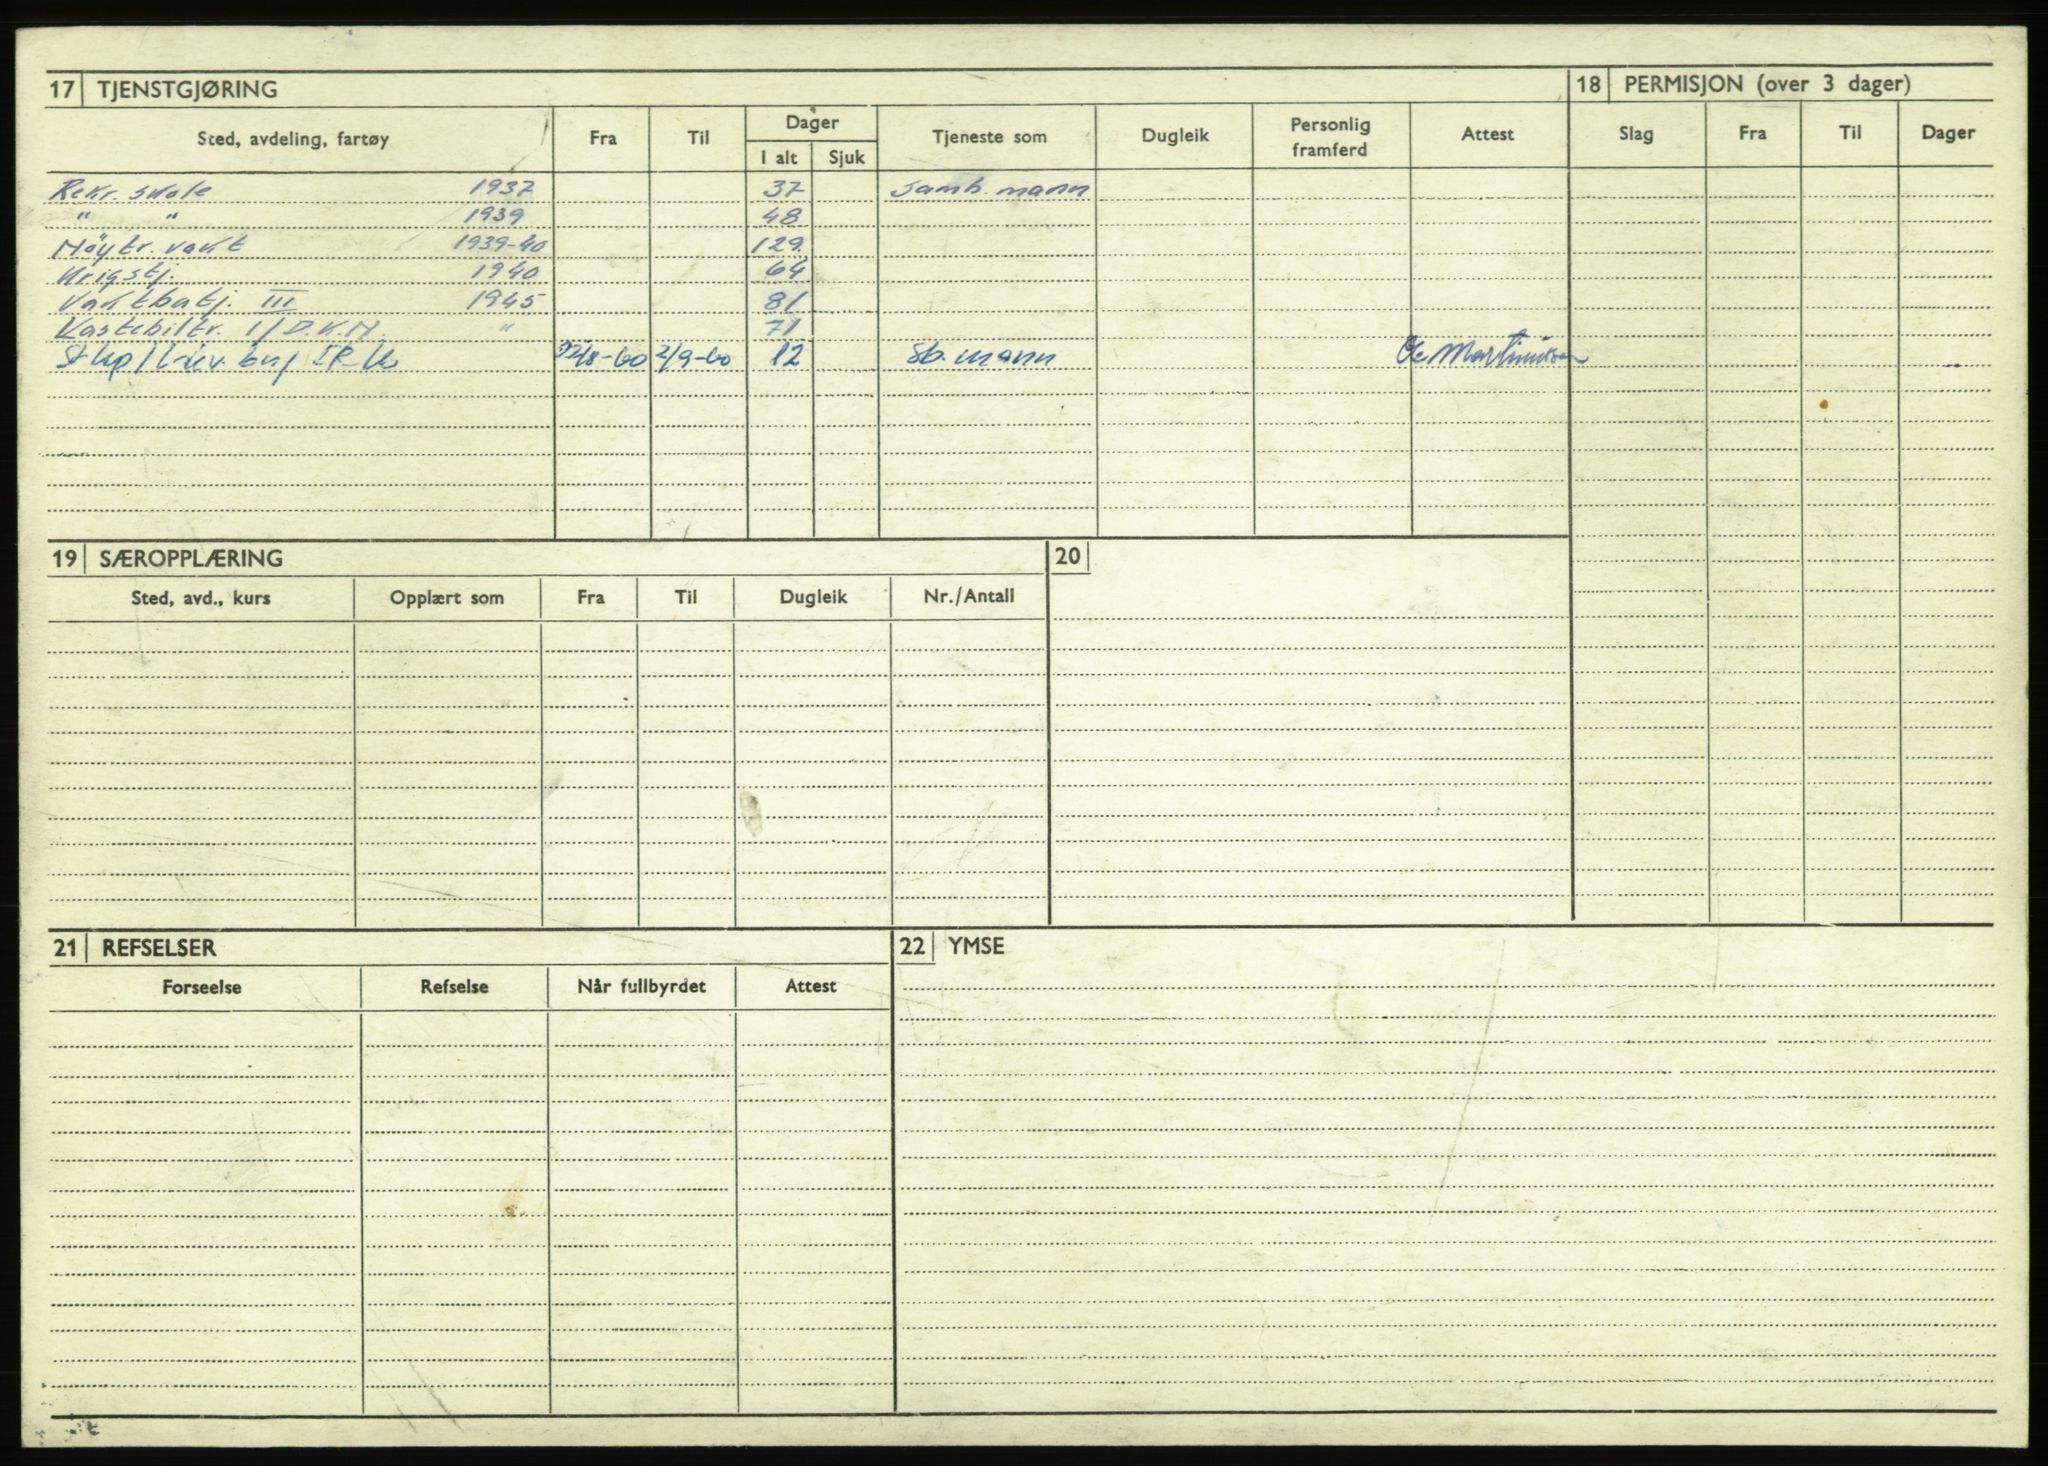 17 TJENSTGJØRING
18 PERMISJON (over 3 dager)
Sted, avdeling, fartøy Fra Til Dager Tjeneste som Dugleik Personlig framferd Attest Slag Fra Til Dager
I alt Sjuk
Rekr. skole 1937 37 samb. mann
" " 1939 48
Nøytr. vakt 1939-40 129
Krigstj. 1940 64
Vaktbatj. III 1945 81
Kastebiltr. 1/D.K.N. " 71
22/8-60 2/9-60 12 sb. mann Ole Martinussen
19 SÆROPPLÆRING
20
Sted, avd., kurs Opplært som Fra Til Dugleik Nr./Antall
21 REFSELSER
22 YMSE
Forseelse Refselse Når fullbyrdet Attest